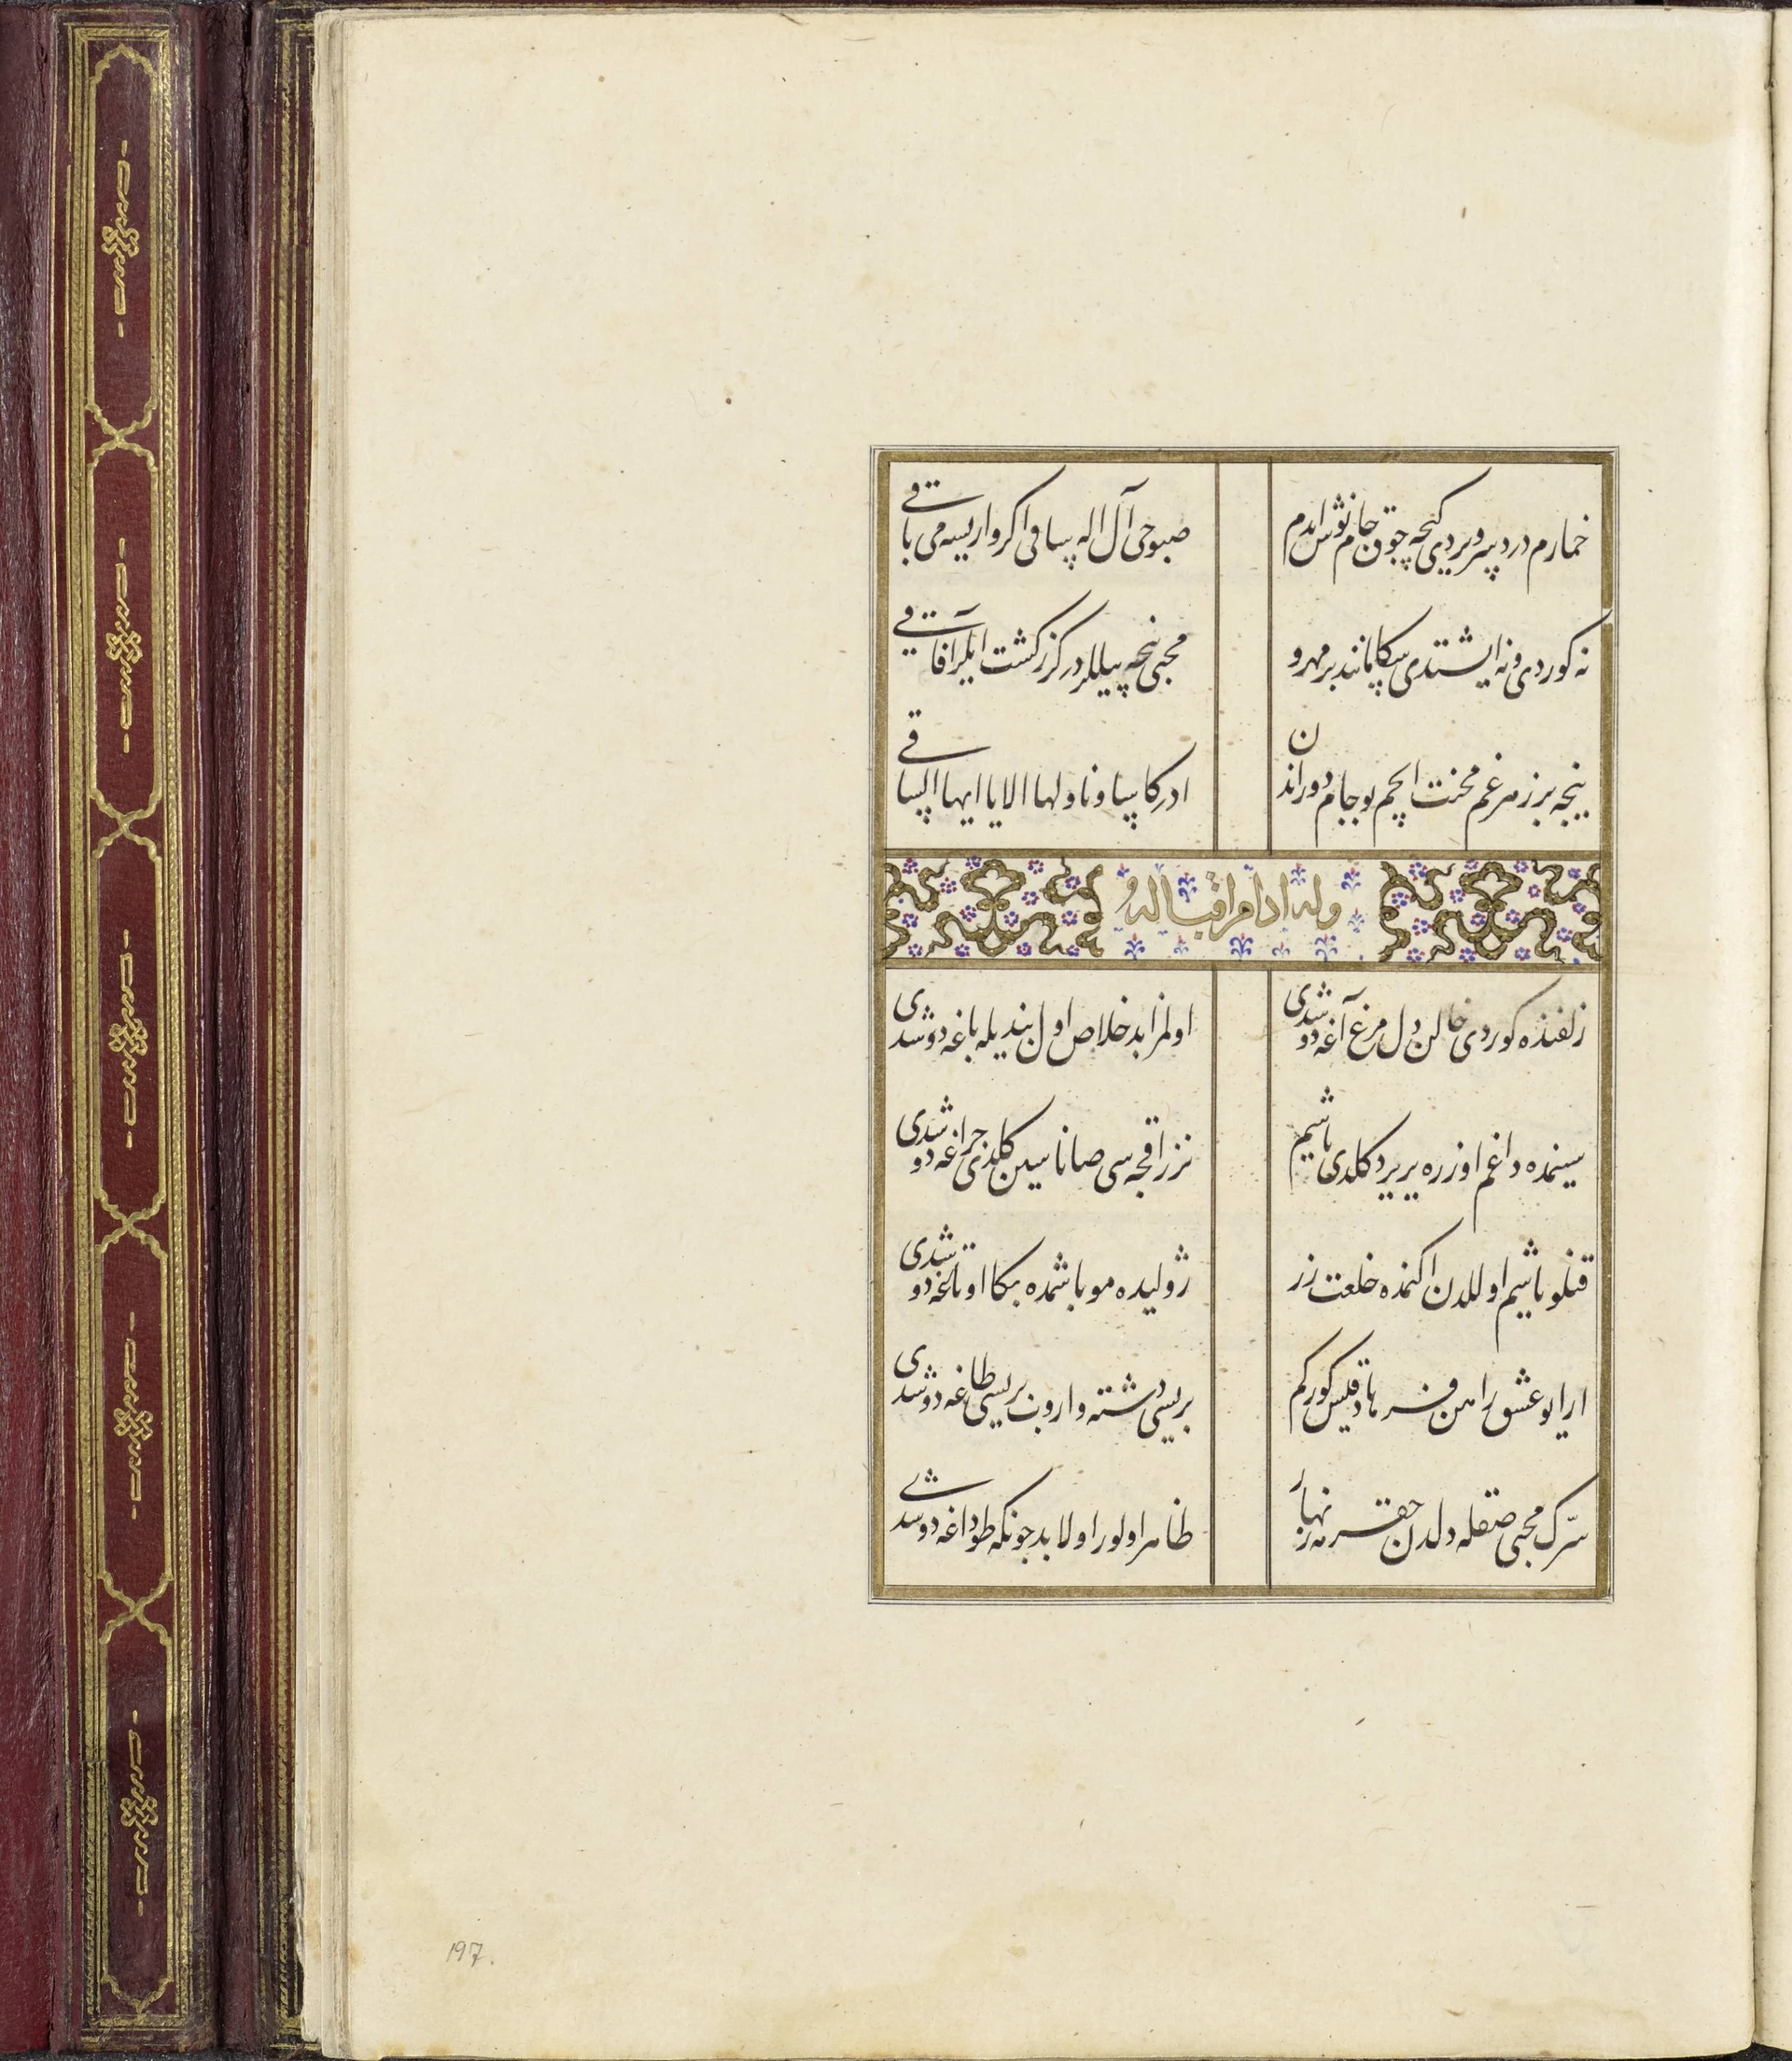 خمارم درد سر ویردی کیجه چوق جام نوش ایدم
صبوحی آل اله ساقی اکر وار ایسه می باقی
نه کوردی و نه ایشتدی سکا مانند بر مهرو
محبی نیجه ییللر در کزر کشت ایلر آفاقی
نیجه بر زهر غم محنت ایچم بو جام دوراندن
ادر کاسا و ناولها الا یا ایها الساقی
وله ادام اقباله
زلفنده کوردی خالن دل مرغی آغه دوشدی
اولمز ابد خلاص اول بند یله باغه دوشدی
سینمده داغم اوزره یر یر دکلدی باشیم
نزر اقچه سی صاناسین کلدی چراغه دوشدی
قنلو یاشیم اوللدن اکنمده خلعت زر
ژولیده مو باشمده بکا اوتاغه دوشدی
ارایو عشق راهن فرهاد قیس کورکم
بریسی دشته واروب بریسی طاغه دوشدی
سرک محبی صقله دلدن حقر نهانی
ظاهر اولور اولابد چونکه طوداغه دوشدی
197.